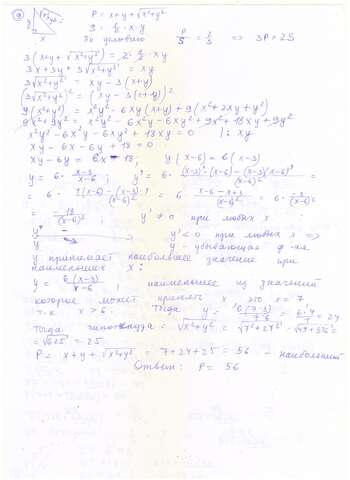 9) y √x²+y² P = x+y+√x²+y²
x S = 1/2 · x·y
По условию P/S = 2/3 => 3P = 2S
3(x+y+√x²+y²) = 2·1/2·xy
3x+3y+3√x²+y² = xy
3√x²+y² = xy - 3(x+y)
(3√x²+y²)² = (xy - 3(x+y))²
9(x²+y²) = x²y² - 6xy(x+y) + 9(x²+2xy+y²)
9x²+9y² = x²y² - 6x²y - 6xy² + 9x² + 18xy + 9y²
x²y² - 6x²y - 6xy² + 18xy = 0 |: xy
xy - 6x - 6y + 18 = 0
xy - 6y = 6x - 18; y(x-6) = 6(x-3)
y = 6· (x-3)/(x-6) ; y' = 6· ((x-3)'·(x-6) - (x-3)(x-6)')/(x-6)² =
= 6· (1(x-6) - (x-3)·1)/(x-6)² = 6 (x-6-x+3)/(x-6)² = 6· (-3)/(x-6)² =
= - 18/(x-6)² ; y' ≠ 0 при любых x
y' - y' < 0 при любых x =>
y y - убывающая ф-ия.
y принимает наибольшее значение при
наименьших x:
y = 6(x-3)/(x-6) ; наименьшее из значений
которое может принять x это x = 7
т.к. x > 6. Тогда y = 6(7-3)/(7-6) = 6·4/1 = 24
Тогда гипотенуза = √x²+y² = √7²+24² = √49+576 =
= √625 = 25
P = x+y+√x²+y² = 7+24+25 = 56 - наибольший
Ответ: P = 56